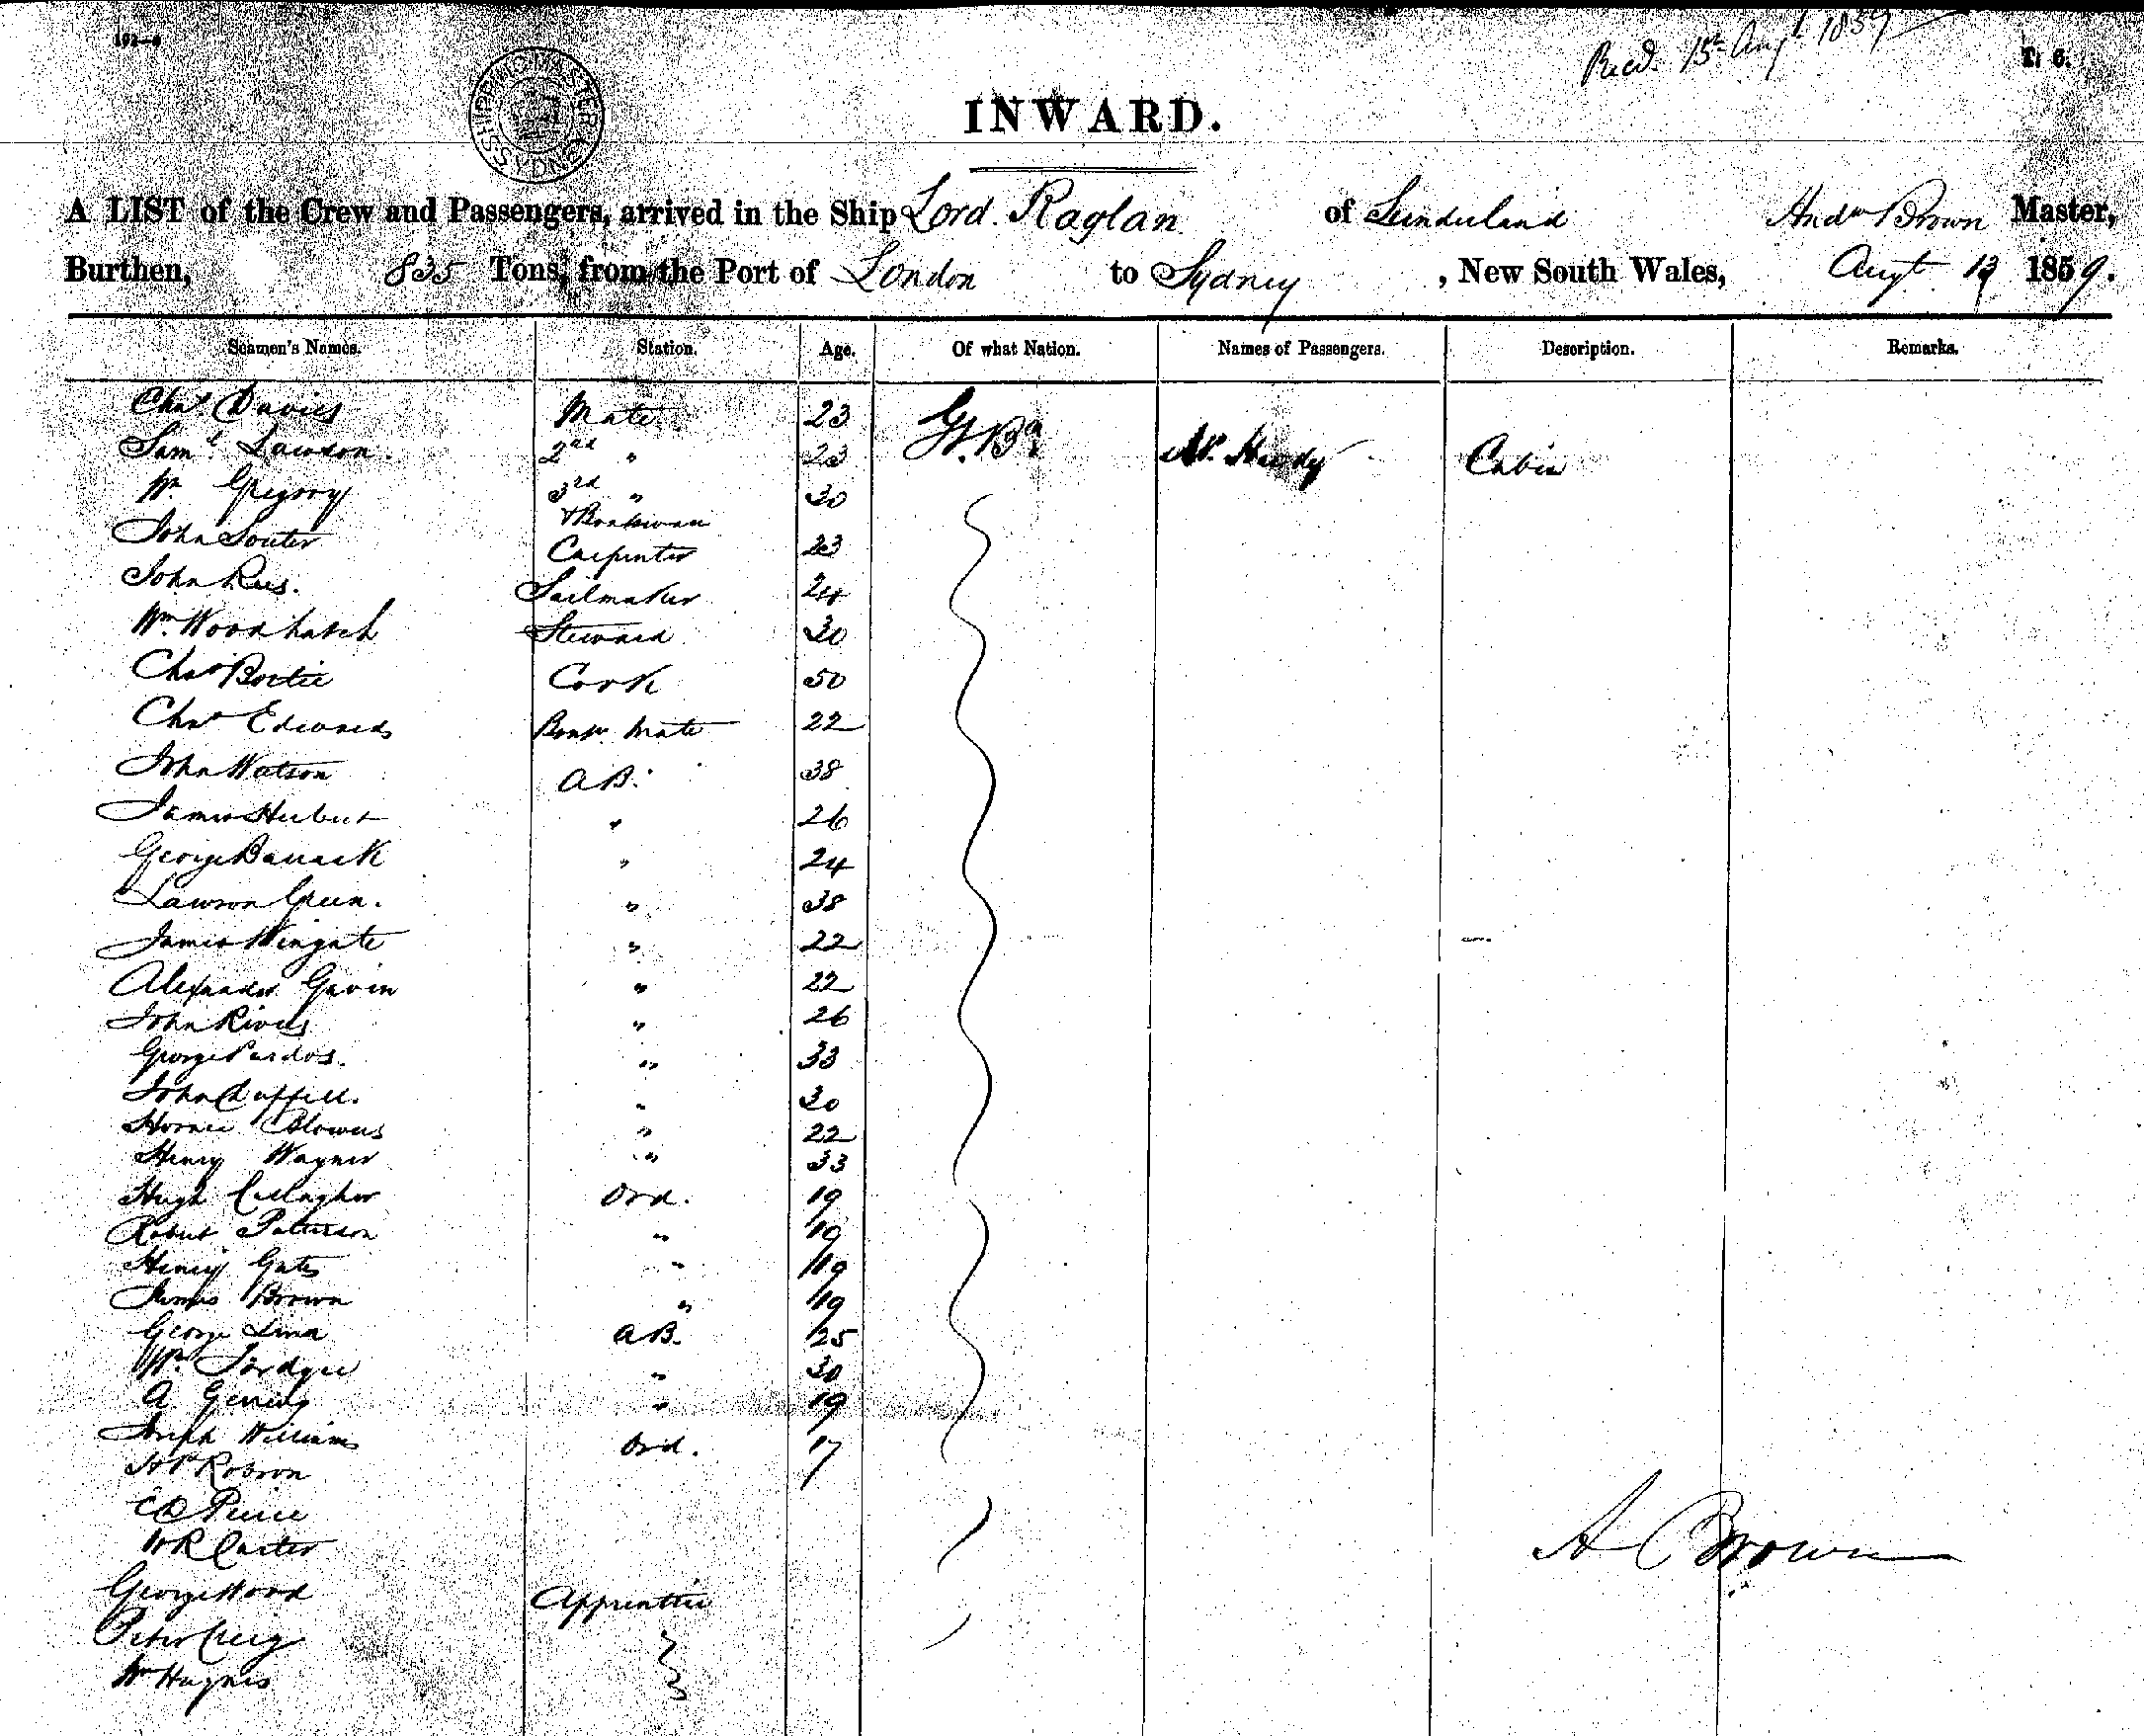 Recd. 15th Augt. 1859
T. 6.
SHIPPING MASTER
INWARD.
A LIST of the Crew and Passengers, arrived in the Ship Lord Raglan of Sunderland Andw Brown Master,
Burthen, 835 Tons, from the Port of London to Sydney, New South Wales, Augt 13 1859.
Seamen's Names. Station. Age. Of what Nation. Names of Passengers. Description. Remarks.
Chas Davies Mate 23 Gt. Bn
Saml Lawson. 2nd " 23 Mr. Hardy Cabin
Wm Gregory 3rd " 30
& Boatswan
John Souter Carpenter 23
John Rees. Sailmaker 24
Wm Woodhatch Steward 30
Chas Cook 50
Chas Edwards Boatsn Mate 22
John Watson A B. 38
James Herbert " 26
George Barrack " 24
Lawson Green. " 38
James Wingate " 22
Alexander Gavin " 22
John Rivers " 26
George Pardos. " 33
John " 30
Horace Blowers " 22
Henry Wagner " 33
Hugh Callagher Ord. 19
Robert Patterson " 19
Henry Gates " 19
James Brown " 19
George A B. 25
Wm " 30
A. " 19
Joseph Williams Ord. 17
Robson
Peirce
W R Carter
A Brown
George Wood Apprentice
Peter Creig
Wm Hughes